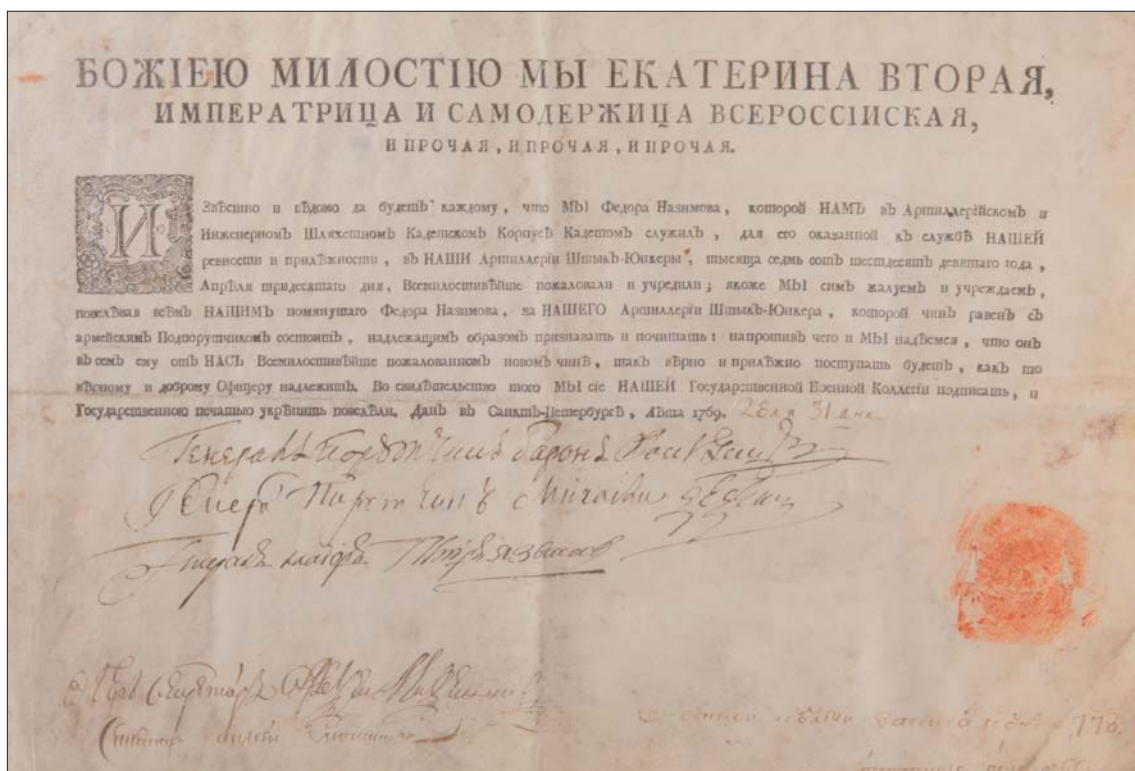 БОЖІЕЮ МИЛОСТІЮ МЫ ЕКАТЕРИНА ВТОРАЯ,
ИМПЕРАТРИЦА И САМОДЕРЖИЦА ВСЕРОССІИСКАЯ,
И ПРОЧАЯ, И ПРОЧАЯ, И ПРОЧАЯ.
ИЗвѣстно и вѣдомо да будетъ каждому, что МЫ Федора Назимова, которой НАМЪ въ Артиллерійскомъ и
Инженерномъ Шляхетномъ Кадетскомъ Корпусѣ Кадетомъ служилъ, для его оказанной къ службѣ НАШЕЙ
ревности и прилѣжности, въ НАШИ Артиллеріи Штыкъ-Юнкеры, тысяща седмь сотъ шестдесятъ девятаго года,
Апрѣля тридесятаго дня, Всемилостивѣйше пожаловали и учредили; якоже МЫ симъ жалуемъ и учреждаемъ,
повелѣвая всѣмъ НАШИМЪ помянутаго Федора Назимова, за НАШЕГО Артиллеріи Штыкъ-Юнкера, которой чинъ равенъ съ
армейскимъ Подпорутчикомъ состоитъ, надлежащимъ образомъ признавать и почитать: напротивъ чего и МЫ надѣемся, что онъ
въ семъ ему отъ НАСЪ Всемилостивѣйше пожалованномъ новомъ чинѣ, такъ вѣрно и прилѣжно поступать будетъ, какъ то
вѣрному и доброму Офицеру надлежитъ. Во свидѣтельство того МЫ сіе НАШЕЙ Государственной Военной Коллегіи подписать, и
Государственною печатью укрѣпить повелѣли. Данъ въ Санктъ-Петербургѣ, лѣта 1769. 31 дня
Генералъ Порутчикъ баронъ
Генералъ Порутчикъ
Генералъ маіоръ
Секретарь